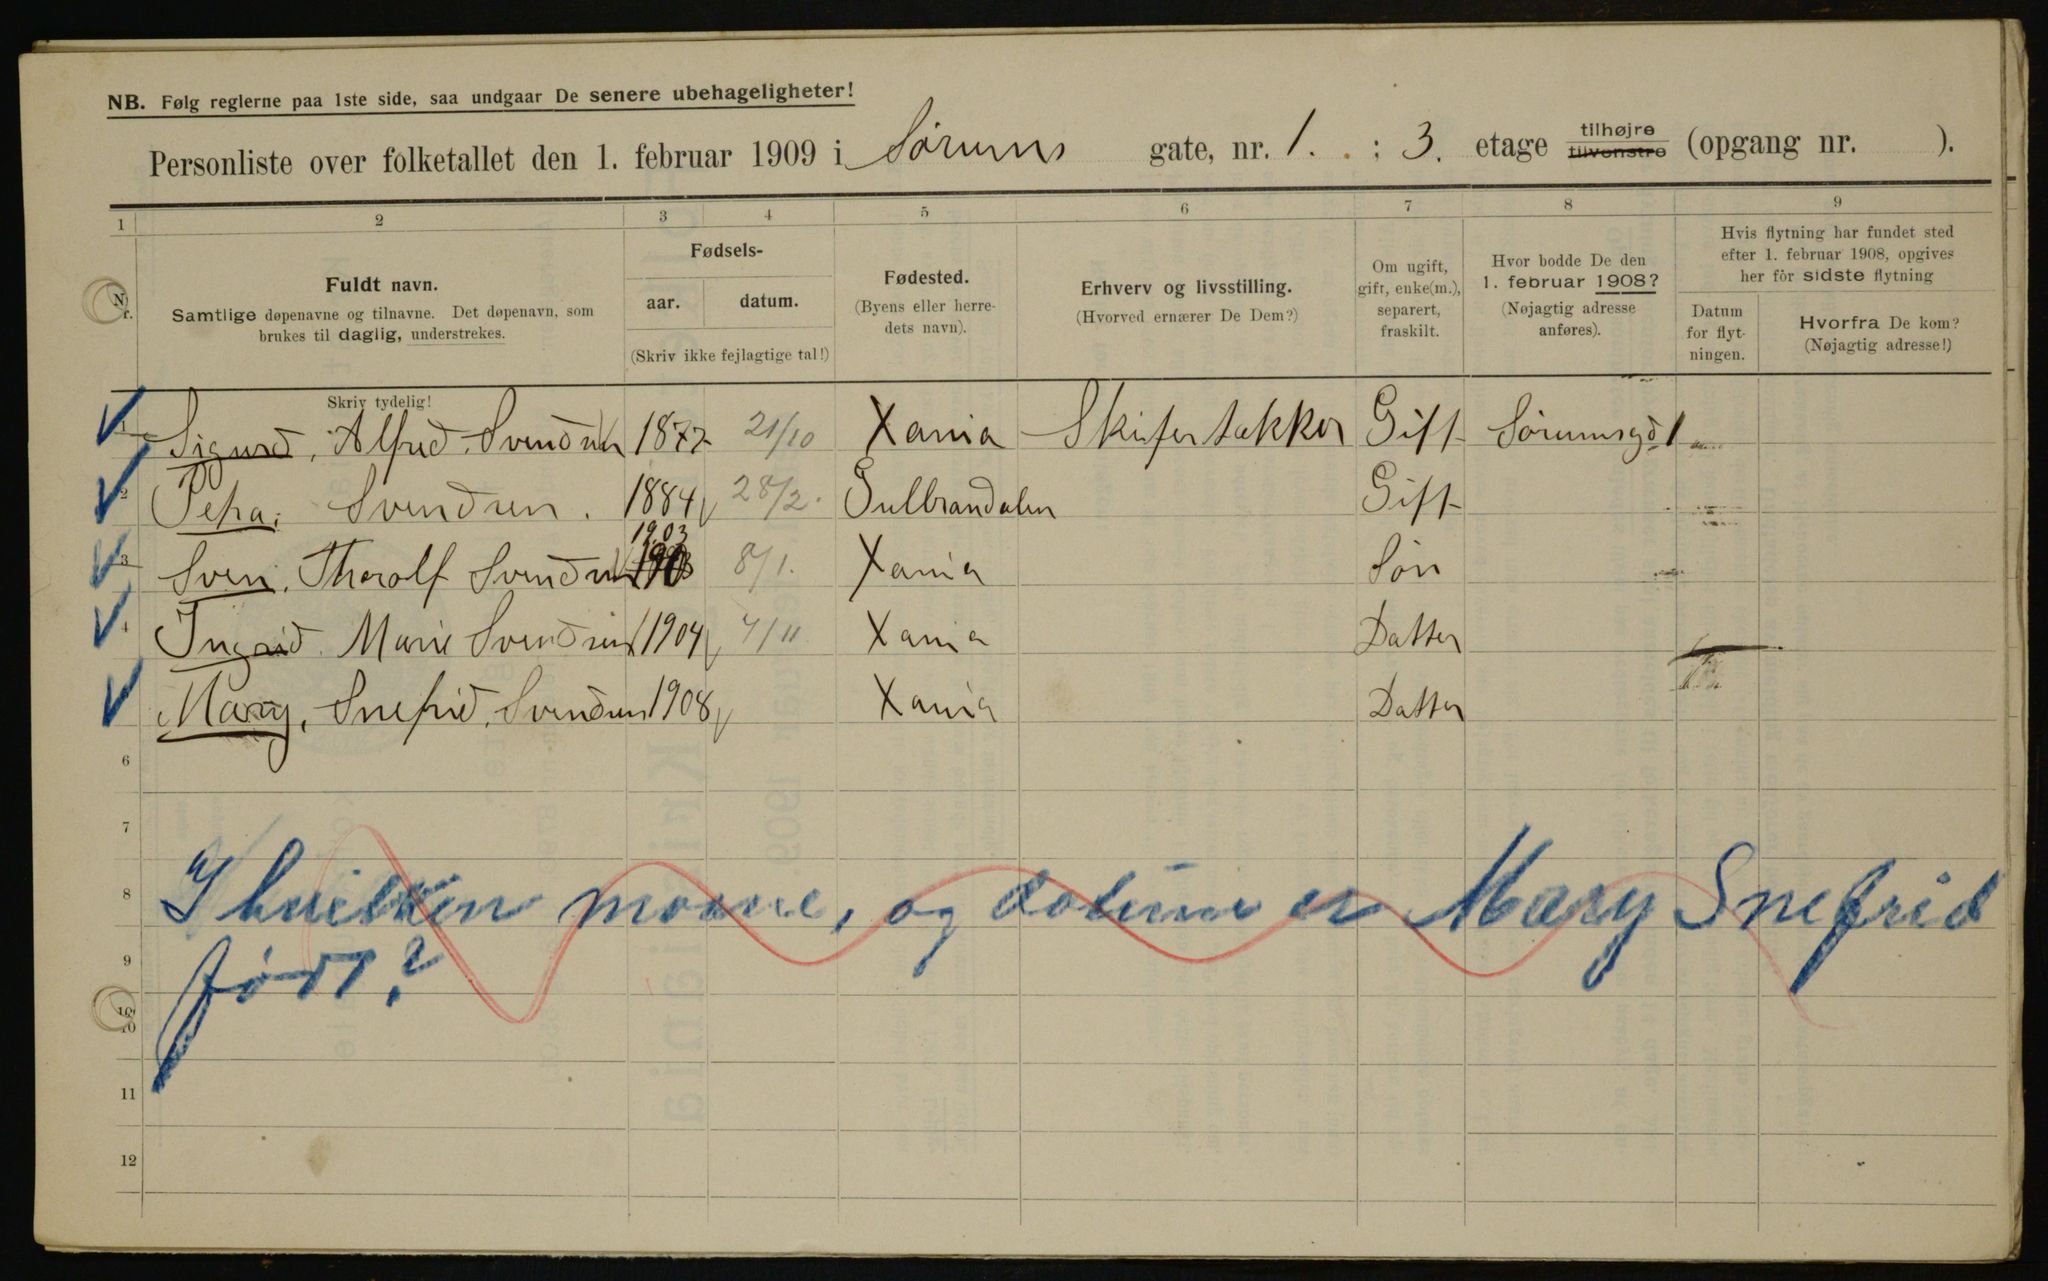 NB. Følg reglerne paa 1ste side, saa undgaar De senere ubehageligheter!
Personliste over folketallet den 1. februar 1909 i Sörums gate, nr. 1. : 3. etage tilhøjre tilvenstre (opgang nr. ).
1 2 3 4 5 6 7 8 9
Nr.
Fuldt navn.
Samtlige døpenavne og tilnavne. Det døpenavn, som
brukes til daglig, understrekes.
Skriv tydelig!
Fødsels-
aar. datum.
(Skriv ikke fejlagtige tal!)
Fødested.
(Byens eller herre-
dets navn).
Erhverv og livsstilling.
(Hvorved ernærer De Dem?)
Om ugift,
gift, enke(m.),
separert,
fraskilt.
Hvor bodde De den
1. februar 1908?
(Nøjagtig adresse
anføres).
Hvis flytning har fundet sted
efter 1. februar 1908, opgives
her för sidste flytning
Datum
for flyt-
ningen.
Hvorfra De kom?
(Nøjagtig adresse!)
1 Sigurd, Alfred Svendsen 1877 21/10 Xania Skifertækker Gift Sörumsgd 1
2 Svendsen. 1884 28/2. Gulbrandalen Gift
1903
3 Sven, Thorolf Svendsen 8/1. Xania Sön
4 Ingrid Marie Svendsen 1904 7/11 Xania Datter
Mary, Snefrid, Svendsen 1908 Xania Datter
6
7
8 I hvilken maane, og datum er Mary Snefrid
9 født?
10
10
11
12